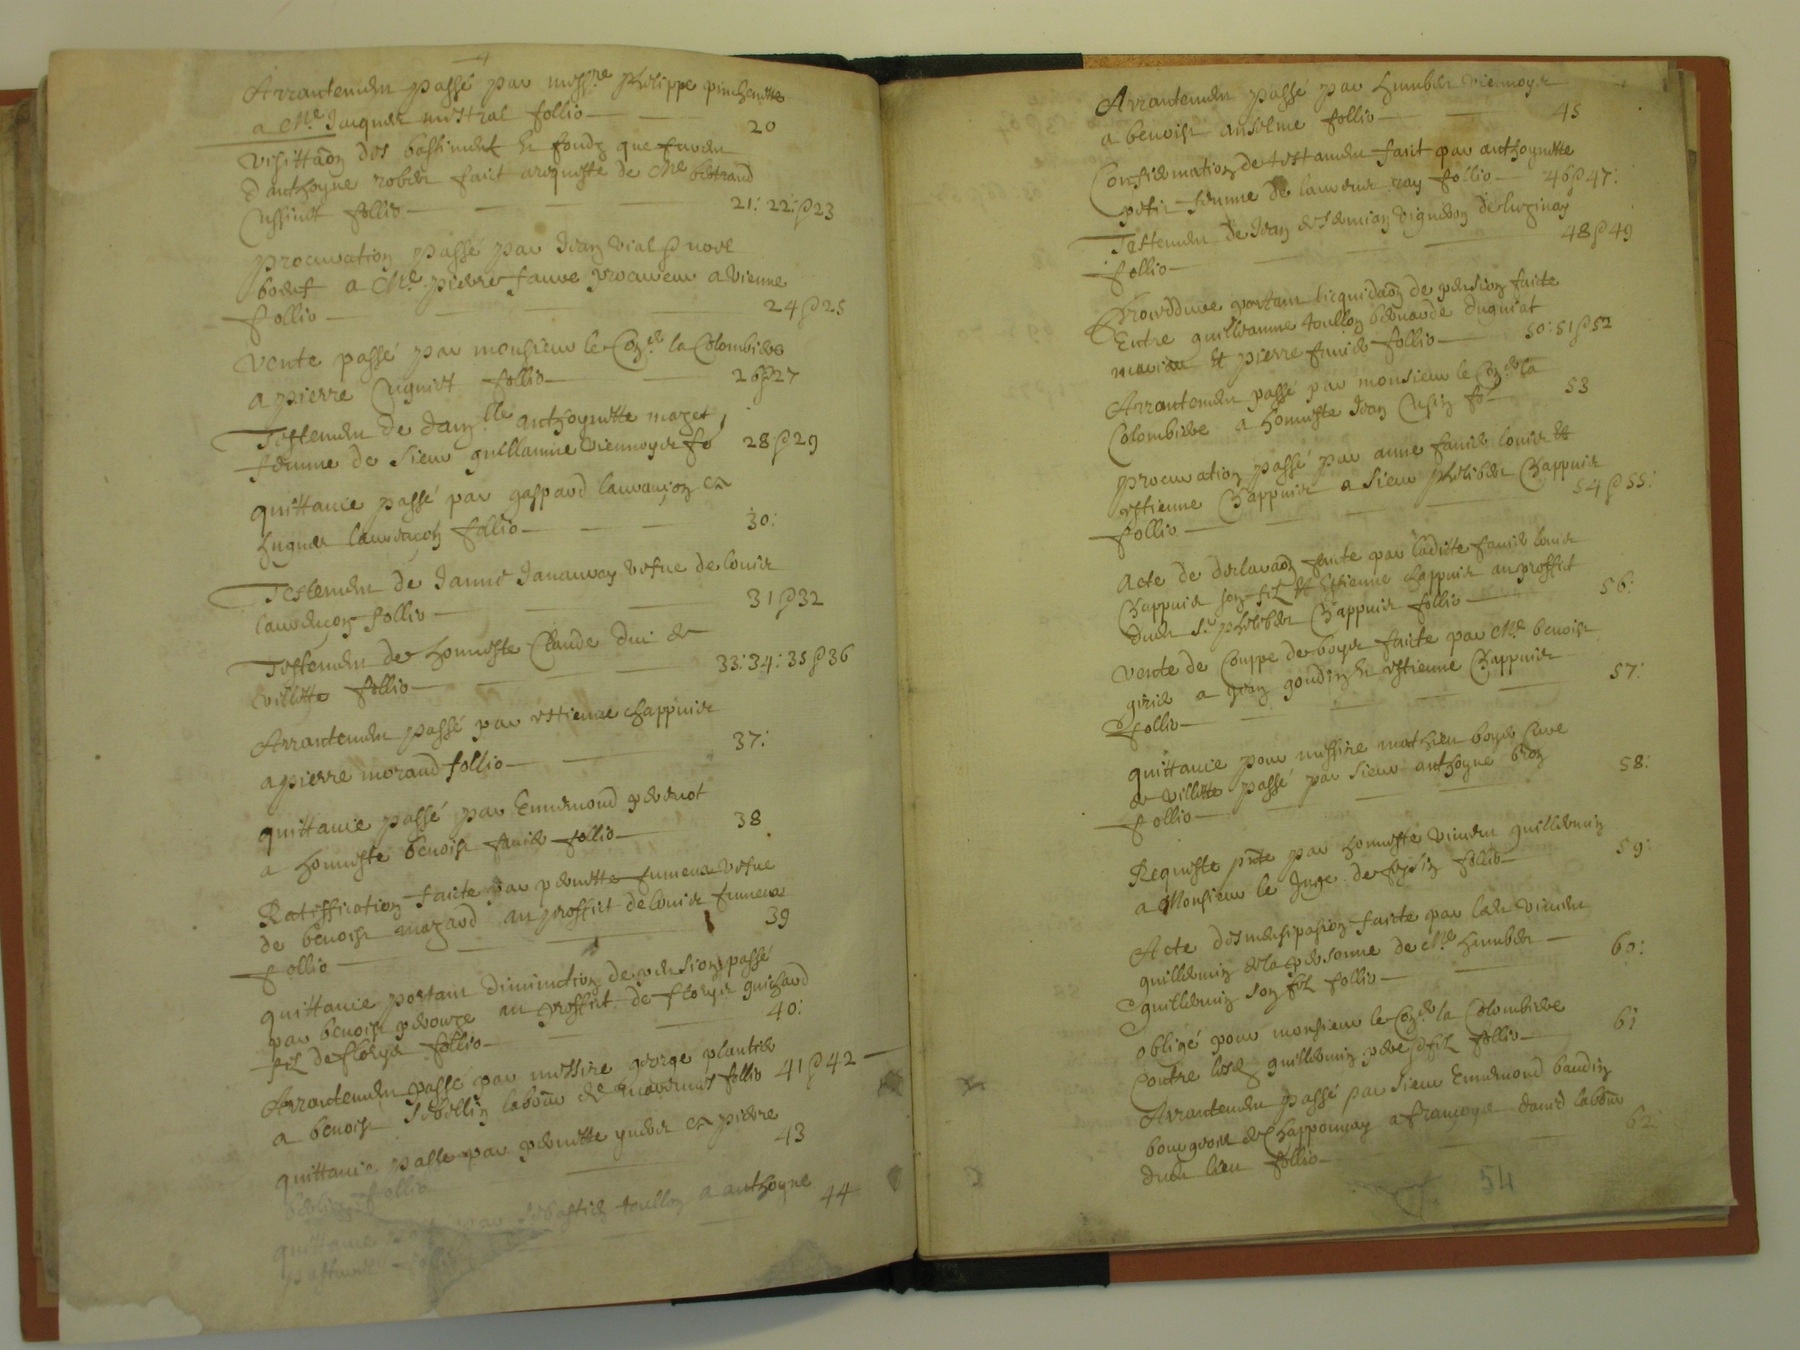 Arrantemen passé par mess.re philippe pinchenotte
a Me Jacques mistral follio 20
Visittaon des bastimens et fondz que furen
d'anthoyne rober faict a requeste de Me bertrand
Cussinet follio 21: 22: & 23
procuration passé par Jean vial & noel
boeuf a Me pierre faure procureur a vienne
follio 24 & 25
Vente passé par monsieur le Con.er la Colombiere
a pierre Cuguiet follio 26 & 27
Testemen de dam.lle anthoynette mozet
femme de sieur guillaume viennoys fo 28 & 29
quittance passé par gaspard lauranson et
hugues lauranson follio 30:
Testemen de Janne Janauray vefue de louis
lauranson follio 31 & 32
Testemen de honneste Claude duc de
villette follio 33: 34: 35 & 36
Arrantemen passé par estienne chappuis
a pierre morand follio 37:
quittance passé par Ennemond perenot
a honneste benoist faure follio 38
Rattiffication faicte par pernette fumeux vefue
de benoist mazard au proffict de louis fumeux
follio 39
quittance portant diminution de pension passé
par benoist au proffict de fleury guichard
filz de fleury follio 40:
Arrantemen passé par messire george plantier
a benoist sebellin laboûr de marennes follio 41 & 42
quittance passe par pernette et pierre
follio 43
quittance par sebastien toullon a anthoyne
follio 44
Arrantemen passé par humber viennoys
a benoist anselme follio 45
Confirmation de testamen faict par anthoynette
petit femme de laurens ray follio 46 & 47:
Testemen de Jean vigneron de luzinay
follio 48 & 49
Procedure portant licquidaon de pension faicte
Entre guillaume toullon bernarde duguiat
mariés et pierre faure follio 50: 51 & 52
Arrantemen passé par monsieur le Con.er la
Colombiere a honneste Jean Cusin fo 53
procuration passé par anne faure louis et
estienne Chappuis a sieur philiber Chappuis
follio 54 & 55:
Acte de declaraôn faicte par ladicte faure louis
Chappuis son filz et Estienne chappuis au proffict
dudit Sr philiber Chappuis follio 56:
Vente de Couppe de boys faicte par Me benoist
girié a Jean goudin et estienne Chappuis
follio 57:
quittance pour messire mathieu boyer Cure
de villette passé par sieur anthoyne bron
follio 58:
Requeste pnte par honneste vincen guillermin
a Monsieur le Juge de feyzin follio 59:
Acte d'esmensipasion faicte par led. vincen
guillermin de la personne de Me humber
guillermin son filz follio 60:
obligé pour monsieur le Con.er la Colombiere
Contre lesd. guillermin pere & filz follio 61
Arrantemen passé par sieur Ennemond baudin
bourgeois de Chapponnay a françoys david laboûr
dudit lieu follio 62
54